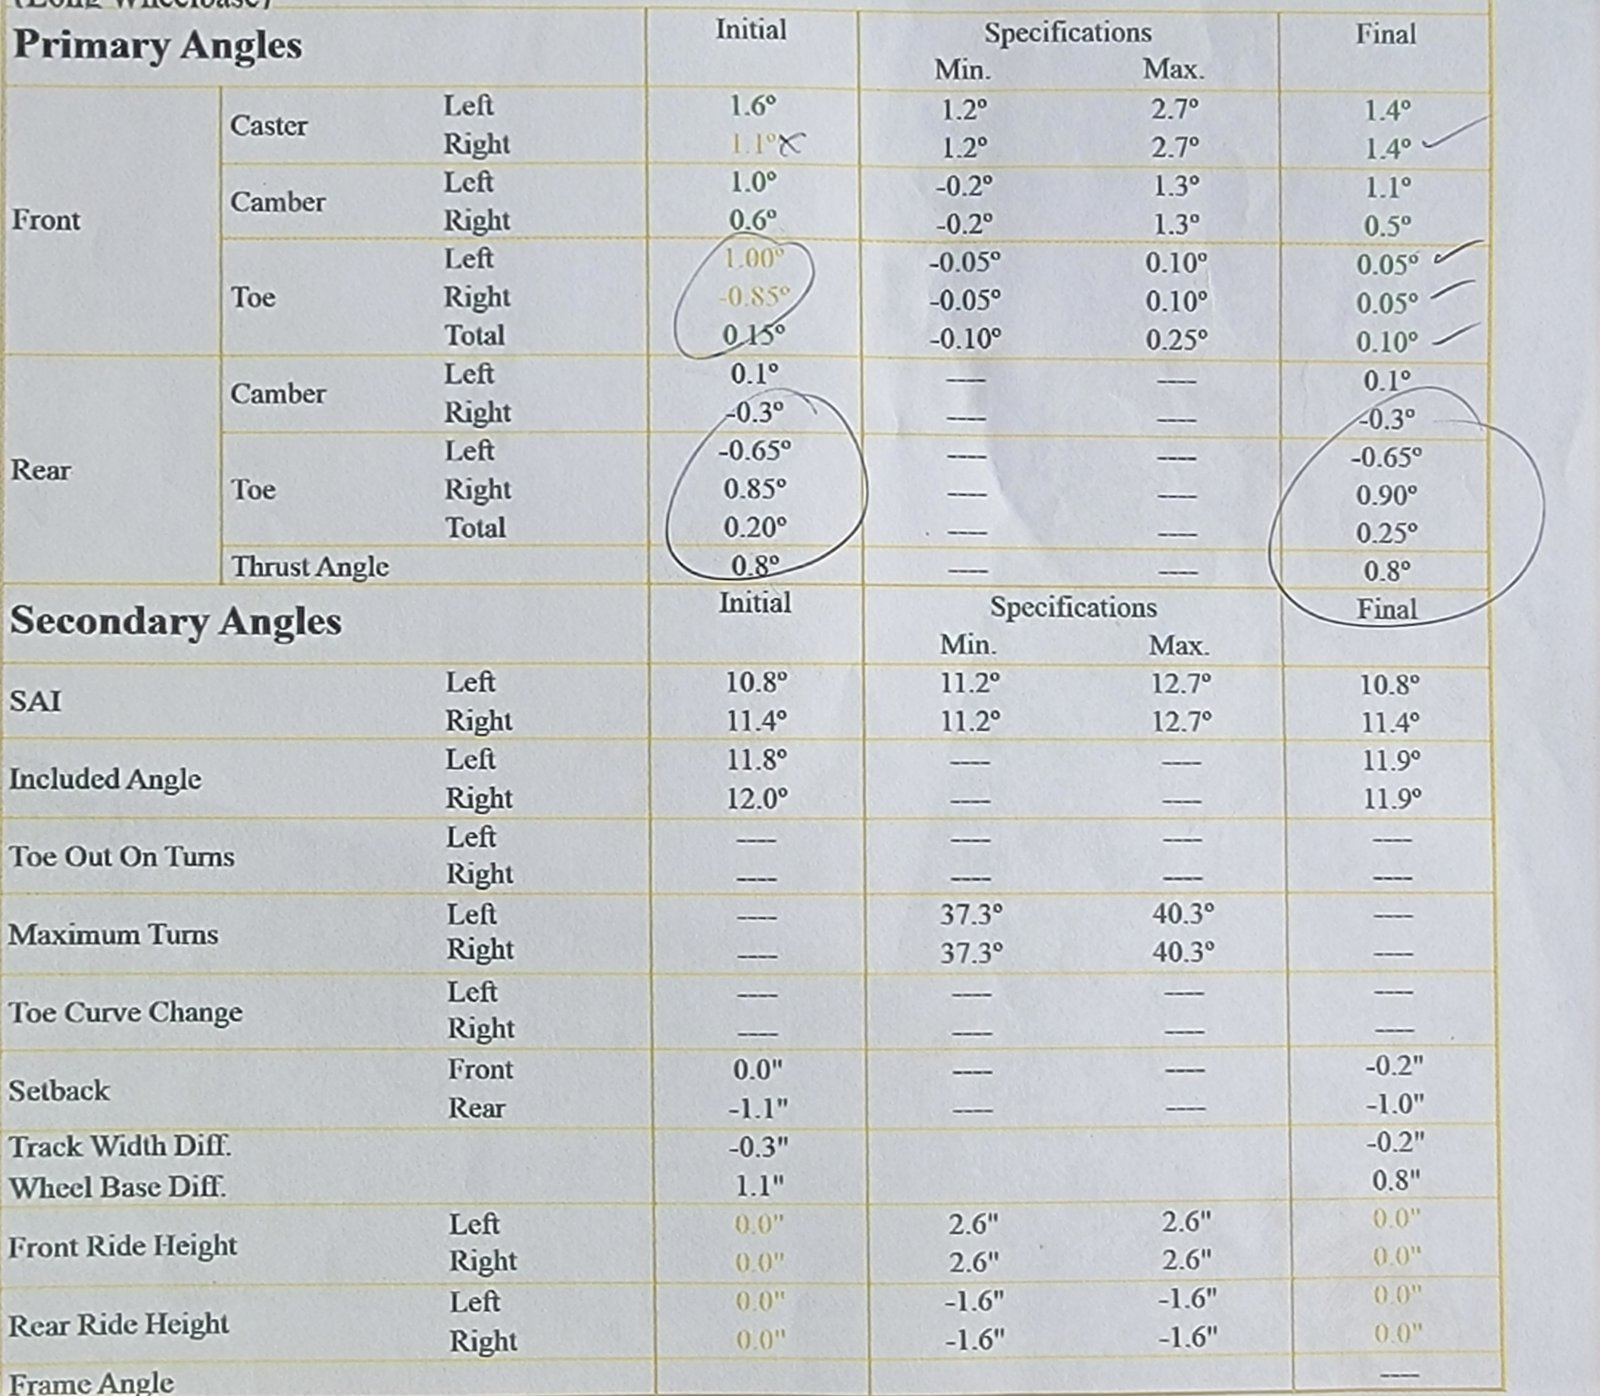 (Long Wheelbase)
Primary Angles Initial Specifications Final
Min. Max.
Front Caster Left 1.6° 1.2° 2.7° 1.4°
Right 1.1° 1.2° 2.7° 1.4°
Camber Left 1.0° -0.2° 1.3° 1.1°
Right 0.6° -0.2° 1.3° 0.5°
Toe Left 1.00° -0.05° 0.10° 0.05°
Right -0.85° -0.05° 0.10° 0.05°
Total 0.15° -0.10° 0.25° 0.10°
Rear Camber Left 0.1° ---- ---- 0.1°
Right -0.3° ---- ---- -0.3°
Toe Left -0.65° ---- ---- -0.65°
Right 0.85° ---- ---- 0.90°
Total 0.20° ---- ---- 0.25°
Thrust Angle 0.8° ---- ---- 0.8°
Secondary Angles Initial Specifications Final
Min. Max.
SAI Left 10.8° 11.2° 12.7° 10.8°
Right 11.4° 11.2° 12.7° 11.4°
Included Angle Left 11.8° ---- ---- 11.9°
Right 12.0° ---- ---- 11.9°
Toe Out On Turns Left ---- ---- ---- ----
Right ---- ---- ---- ----
Maximum Turns Left ---- 37.3° 40.3° ----
Right ---- 37.3° 40.3° ----
Toe Curve Change Left ---- ---- ---- ----
Right ---- ---- ---- ----
Setback Front 0.0" ---- ---- -0.2"
Rear -1.1" ---- ---- -1.0"
Track Width Diff. -0.3" -0.2"
Wheel Base Diff. 1.1" 0.8"
Front Ride Height Left 0.0" 2.6" 2.6" 0.0"
Right 0.0" 2.6" 2.6" 0.0"
Rear Ride Height Left 0.0" -1.6" -1.6" 0.0"
Right 0.0" -1.6" -1.6" 0.0"
Frame Angle ----